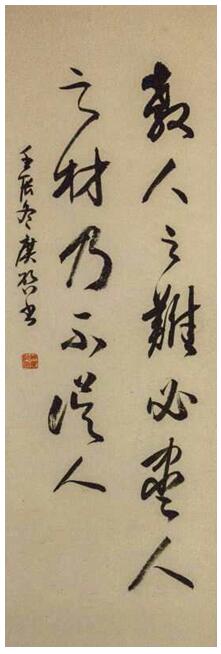 教人之難必盡人
之材乃不誤人
壬辰冬庚書